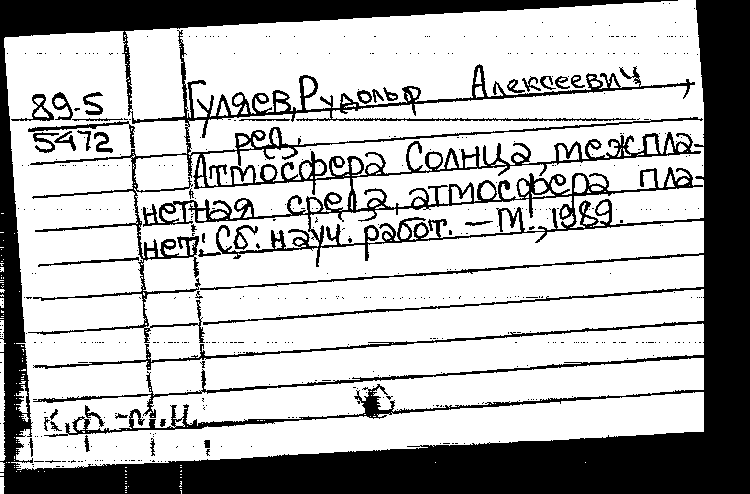 89-5
5472
Гуляев, Рудольф Алексеевич,
ред.
Атмосфера Солнца, межпла-
нетная среда, атмосфера пла-
нет: Сб. науч. работ. — М., 1989.
к.ф.-м.н.